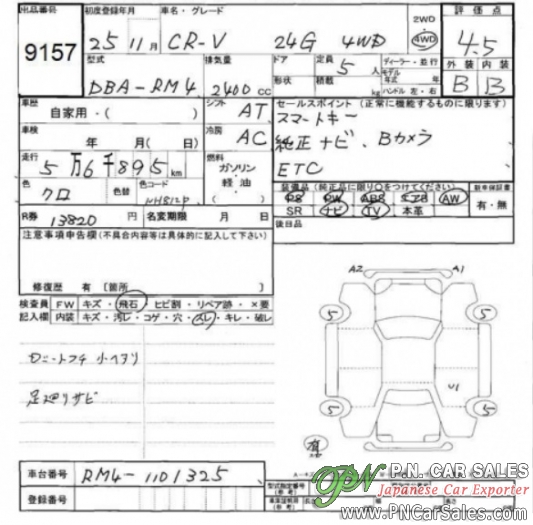 出品番号 9157
初度登録年月 25年 11月
車名・グレード CR-V 24G 4WD
2WD ・ 4WD
評価点 4.5
型式 DBA-RM4
排気量 2400 cc
ドア 形状
定員 5人
積載 kg
ディーラー・並行
モデル年式 年式
ハンドル 左・右
外装 B 内装 B
車歴 自家用・( )
シフト AT
セールスポイント (正常に機能するものに限ります)
スマートキー
純正ナビ、Bカメラ
ETC
車検 年 月( )
冷房 AC
走行 5万6千895km
燃料 ガソリン・軽油・( )
色 クロ 色替 色コード NH812P
装備品 (純正品に限り〇をつけてください)
PS PW ABS エアB AW
SR ナビ TV 本革
記録保証書 有・無
R券 13820円
名変期限 月 日
後日品
注意事項申告欄(不具合内容等は具体的に記入して下さい)
修復歴 有 [箇所 ]
検査員 FW キズ・飛石・ヒビ割・リペア跡・×要
記入欄 内装 キズ・汚レ・コゲ・穴・スレ・キレ・破レ
足廻りサビ
A2 A1
5 5
U1
5 5
有
車台番号 RM4-1101325
登録番号
型式指定番号 (参考)
P.N. CAR SALES
Japanese Car Exporter
www.PNCarSales.com